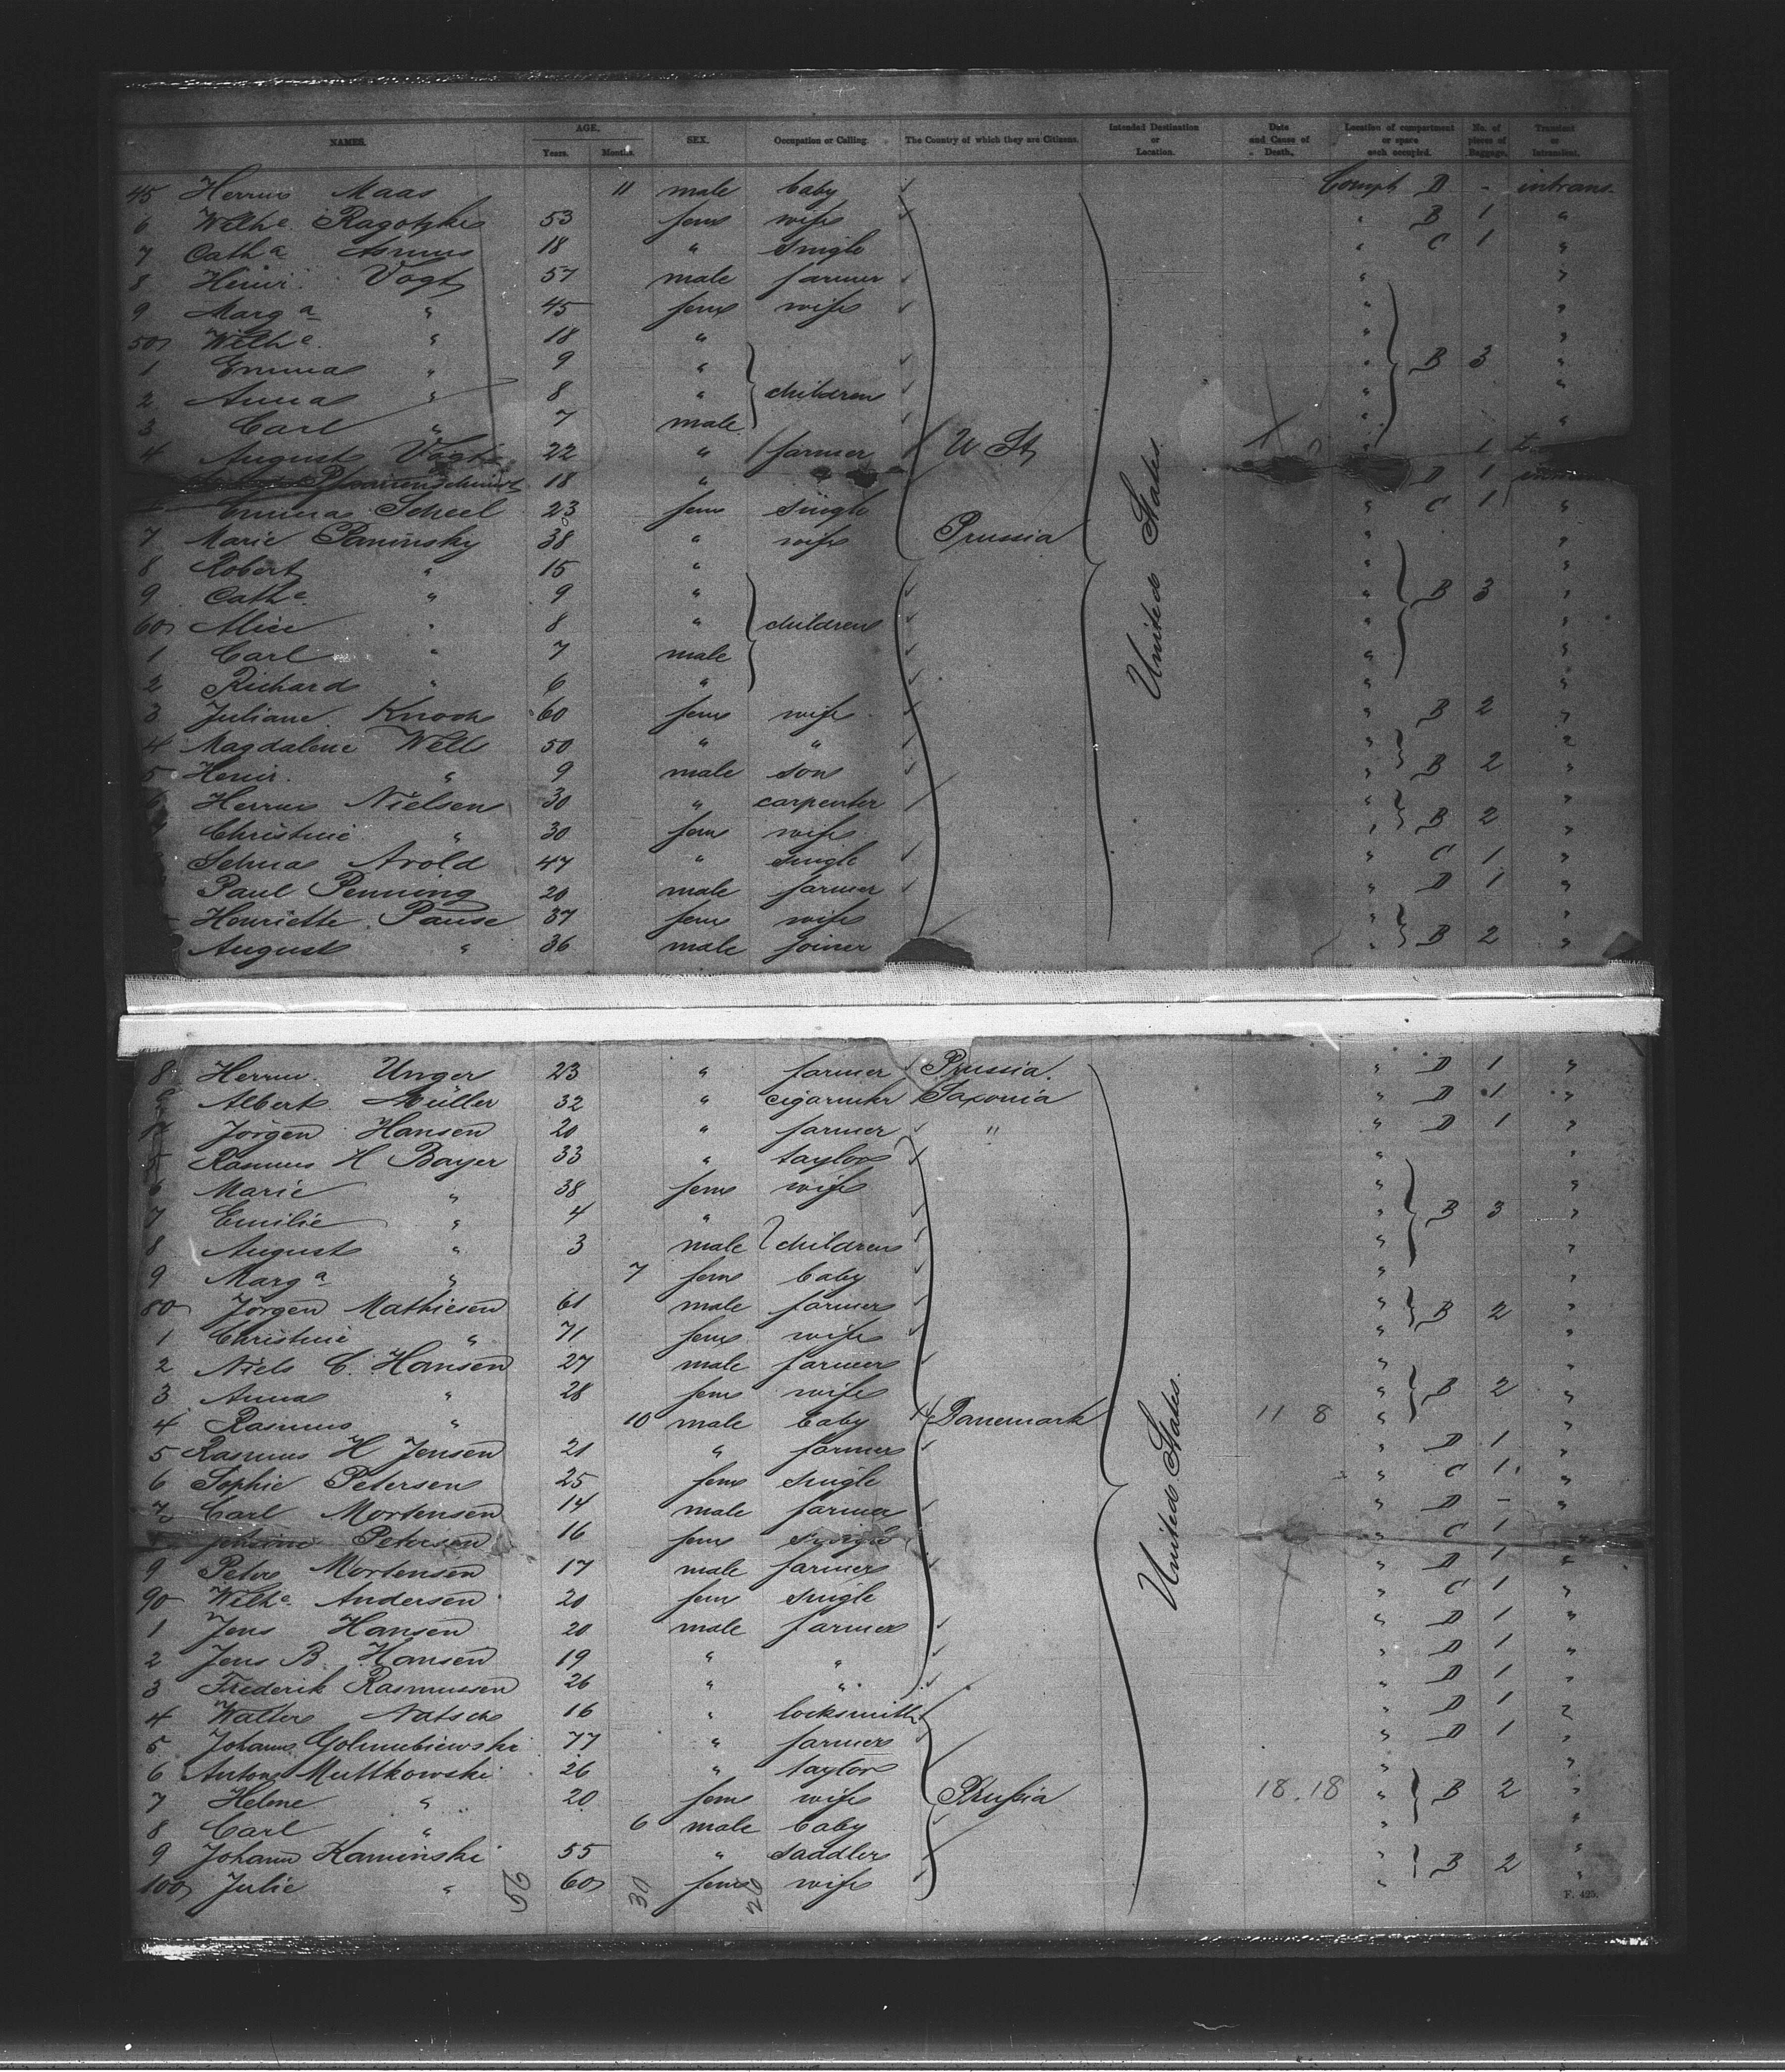 NAMES. AGE. Years. Months. SEX. Occupation or Calling. The Country of which they are Citizens. Intended Destination or Location. Date and Cause of Death. Location of compartment or space each occupied. No. of pieces of Baggage. Transient or Intransient.
45 Herrm Maas 11 male baby Compt D - intrans.
6 Wilhe. Ragotzke 53 fem wife " B 1 "
7 Catha Asmus 18 " single " C 1 "
8 Heinr. Vogt 57 male farmer " "
9 Marga " 45 fem wife " "
50 Wilhe. " 18 " " "
1 Emma " 9 " " B 3 "
2 Anna " 8 " children " "
3 Carl " 7 male " "
4 August Vogt 22 " farmer U St, 1
18 " " D 1
Emma Scheel 23 fem single " C 1 "
7 Marie Paninsky 38 " wife Prussia " "
8 Robert " 15 " " "
9 Cathe. " 9 " " B 3 "
60 Alice " 8 " children " "
1 Carl " 7 male United States " "
2 Richard " 6 " " "
3 Juliane Knoch 60 fem wife " B 2 "
4 Magdalene Well 50 " " " "
5 Heinr. " 9 male son " B 2 "
6 Herrm Nielsen 30 " carpenter " "
Christine " 30 fem wife " B 2 "
Selma Arold 47 " single " C 1 "
Paul Penning 20 male farmer " D 1 "
Henriette Pause 37 fem wife " "
August " 36 male joiner " B 2 "
8 Herrm. Unger 23 " farmer Prussia. " D 1 "
Albert Müller 32 " cigarmkr Saxonia " D 1 "
Jörgen Hansen 20 " farmer " " D 1 "
Rasmus H Bayer 33 " taylor " "
6 Marie " 38 fem wife " "
7 Emilie " 4 " " B 3 "
8 August " 3 male children " "
9 Marga " 7 fem baby " "
80 Jörgen Mathiesen 61 male farmer " B 2 "
1 Christine " 71 fem wife " "
2 Niels C. Hansen 27 male farmer " "
3 Anna " 28 fem wife " B 2 "
4 Rasmus " 10 male baby Danemark 11 8 " "
5 Rasmus H Jensen 21 " farmer " D 1 "
6 Sophie Petersen 25 fem single " C 1 "
7 Carl Mortensen 14 male farmer United States. " D - "
Petersen 16 fem single " C 1 "
9 Peter Mortensen 17 male farmer " D 1 "
90 Wilhe. Andersen 20 fem single " C 1 "
1 Jens Hansen 20 male farmer " D 1 "
2 Jens B. Hansen 19 " " " D 1 "
3 Frederik Rasmussen 26 " " " D 1 "
4 Walter Natsch 16 " locksmith " D 1 "
5 Johann Golmubiewski 77 " farmer " D 1 "
6 Anton Muttkowski 26 " taylor " "
7 Helene " 20 fem wife Prussia 18.18 " B 2 "
8 Carl " 6 male baby " "
9 Johann Kaminski 55 " saddler " B 2 "
100 Julie " 60 fem wife " "
F. 425.